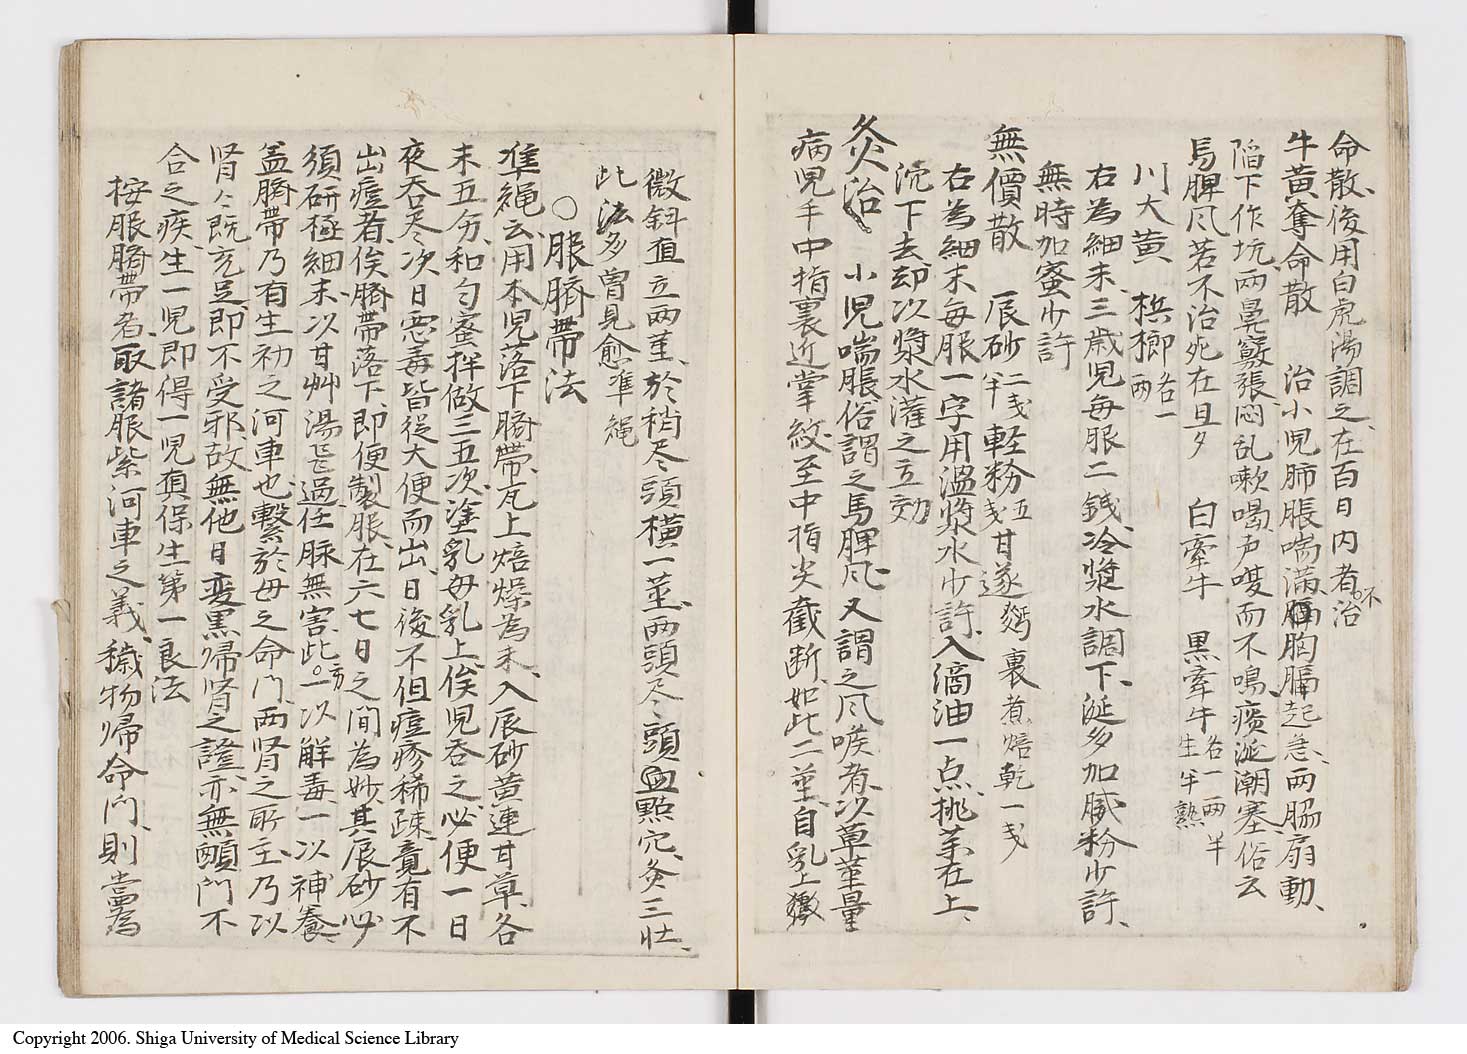 命散、後用白虎湯調之、在百日内者不治
牛黄奪命散　治小児肺脹喘満胸膈起急、両脇扇動、
陥下作坑、両鼻竅張、悶乱嗽喝声嗄而不鳴、痰涎潮塞、俗云
馬脾风若不治死在旦夕　白牽牛　黒牽牛各一両半生半熟
川大黄　梹榔各一両
右為細末、三歳児毎服二銭、冷漿水調下、涎多加膩粉少許、
無時加蜜少許
無價散　辰砂二戔半軽粉五戔甘遂麪裏煮焙乾一戔
右為細末毎服一字用温漿水少許、入滴油一点、挑菓在上、
沉下去却以漿水灌之立効
灸治　小児喘脹俗謂之馬脾风又謂之风喉者以草茎量
病児手中指裏近掌紋至中指尖截断如此二茎、自乳上
微斜直立両茎、於稍尽頭横一茎、両頭尽頭點穴灸三壮、
此法多曽見愈準縄
○服臍帯法
準縄云用本児落下臍帯、瓦上焙燥為末、入辰砂黄連甘草各
末五分、和匀蜜拌做三五次、塗乳母乳上、俟児呑之、必便一日
夜呑尽、次日悪毒皆従大便而出、日後不但痘疹稀疎、竟有不
出痘者、俟臍帯落下、即便製服、在六七日之間為妙、其辰砂必
須研極細末、以甘艸湯飛過、任脉無害、此方一以解毒、一以補養、
盖臍帯乃有生初之河車也、繋於母之命門、両肾之所主、乃以
肾々既充足、即不受邪、故無他日変黒帰肾之證、亦無顖門不
合之疾、生一児即得一児、真保生第一良法
按服臍帯者、取諸服紫河車之義、穢物帰命門、則當為
Copyright 2006. Shiga University of Medical Science Library